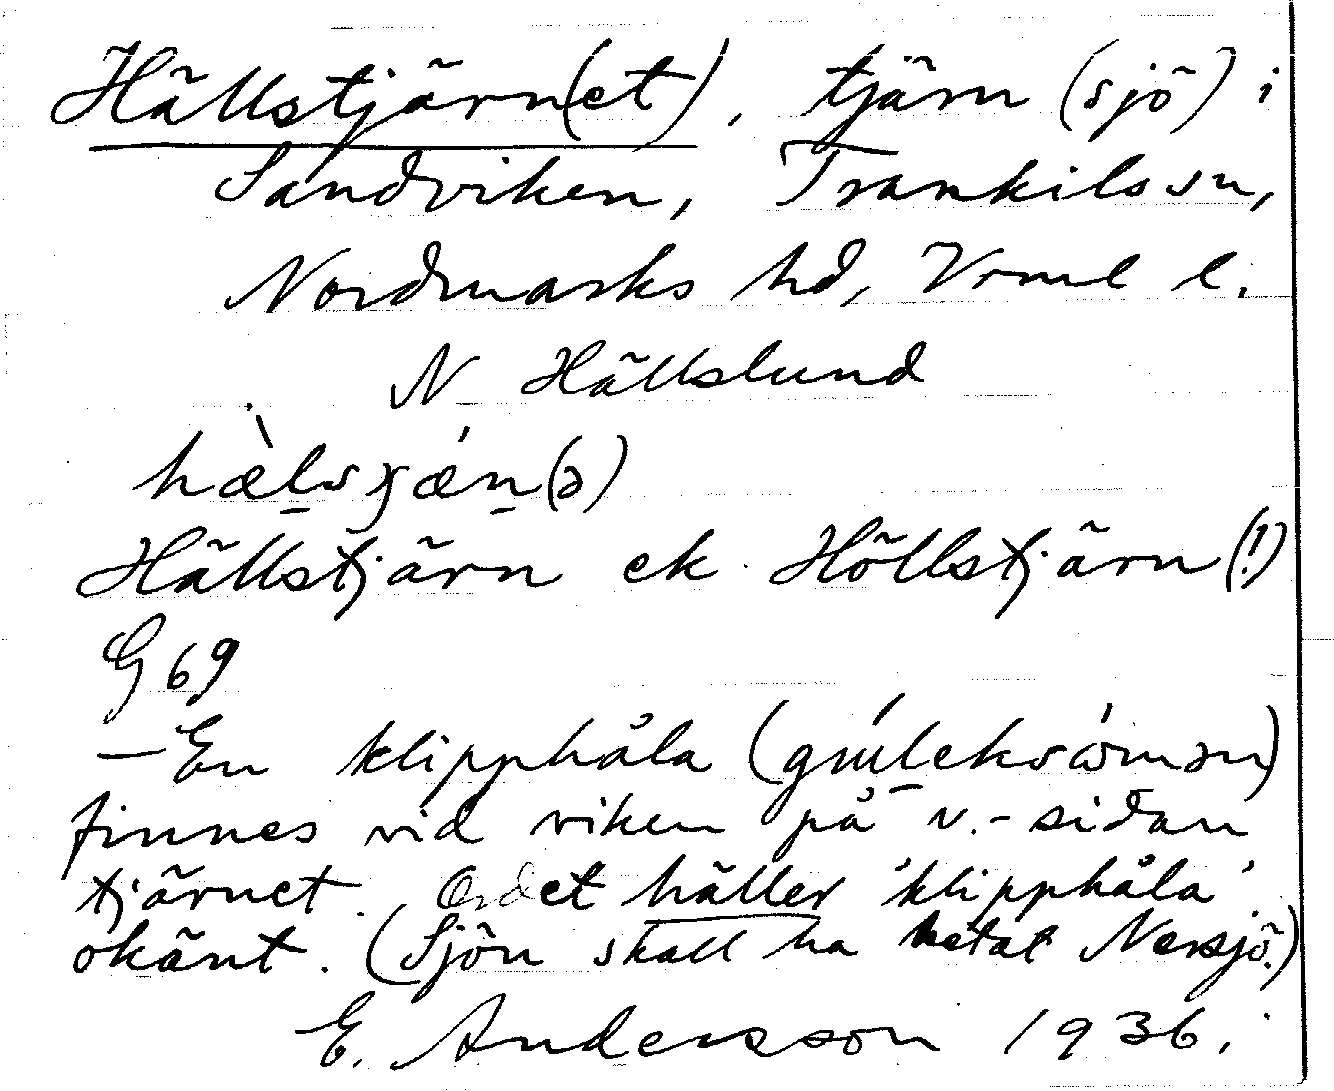 Hällstjärn(et), tjärn (sjö) i
Sandviken, Trankils sn,
Nordmarks hd, Vrml l.
N Hällslund
Hällstjärn ek Höllstjärn(!)
G 69
– En klipphåla
finnes vid viken på v.-sidan
tjärnet. Ordet häller 'klipphåla'
okänt. (Sjön skall ha hetat Nersjö.)
E. Andersson 1936.